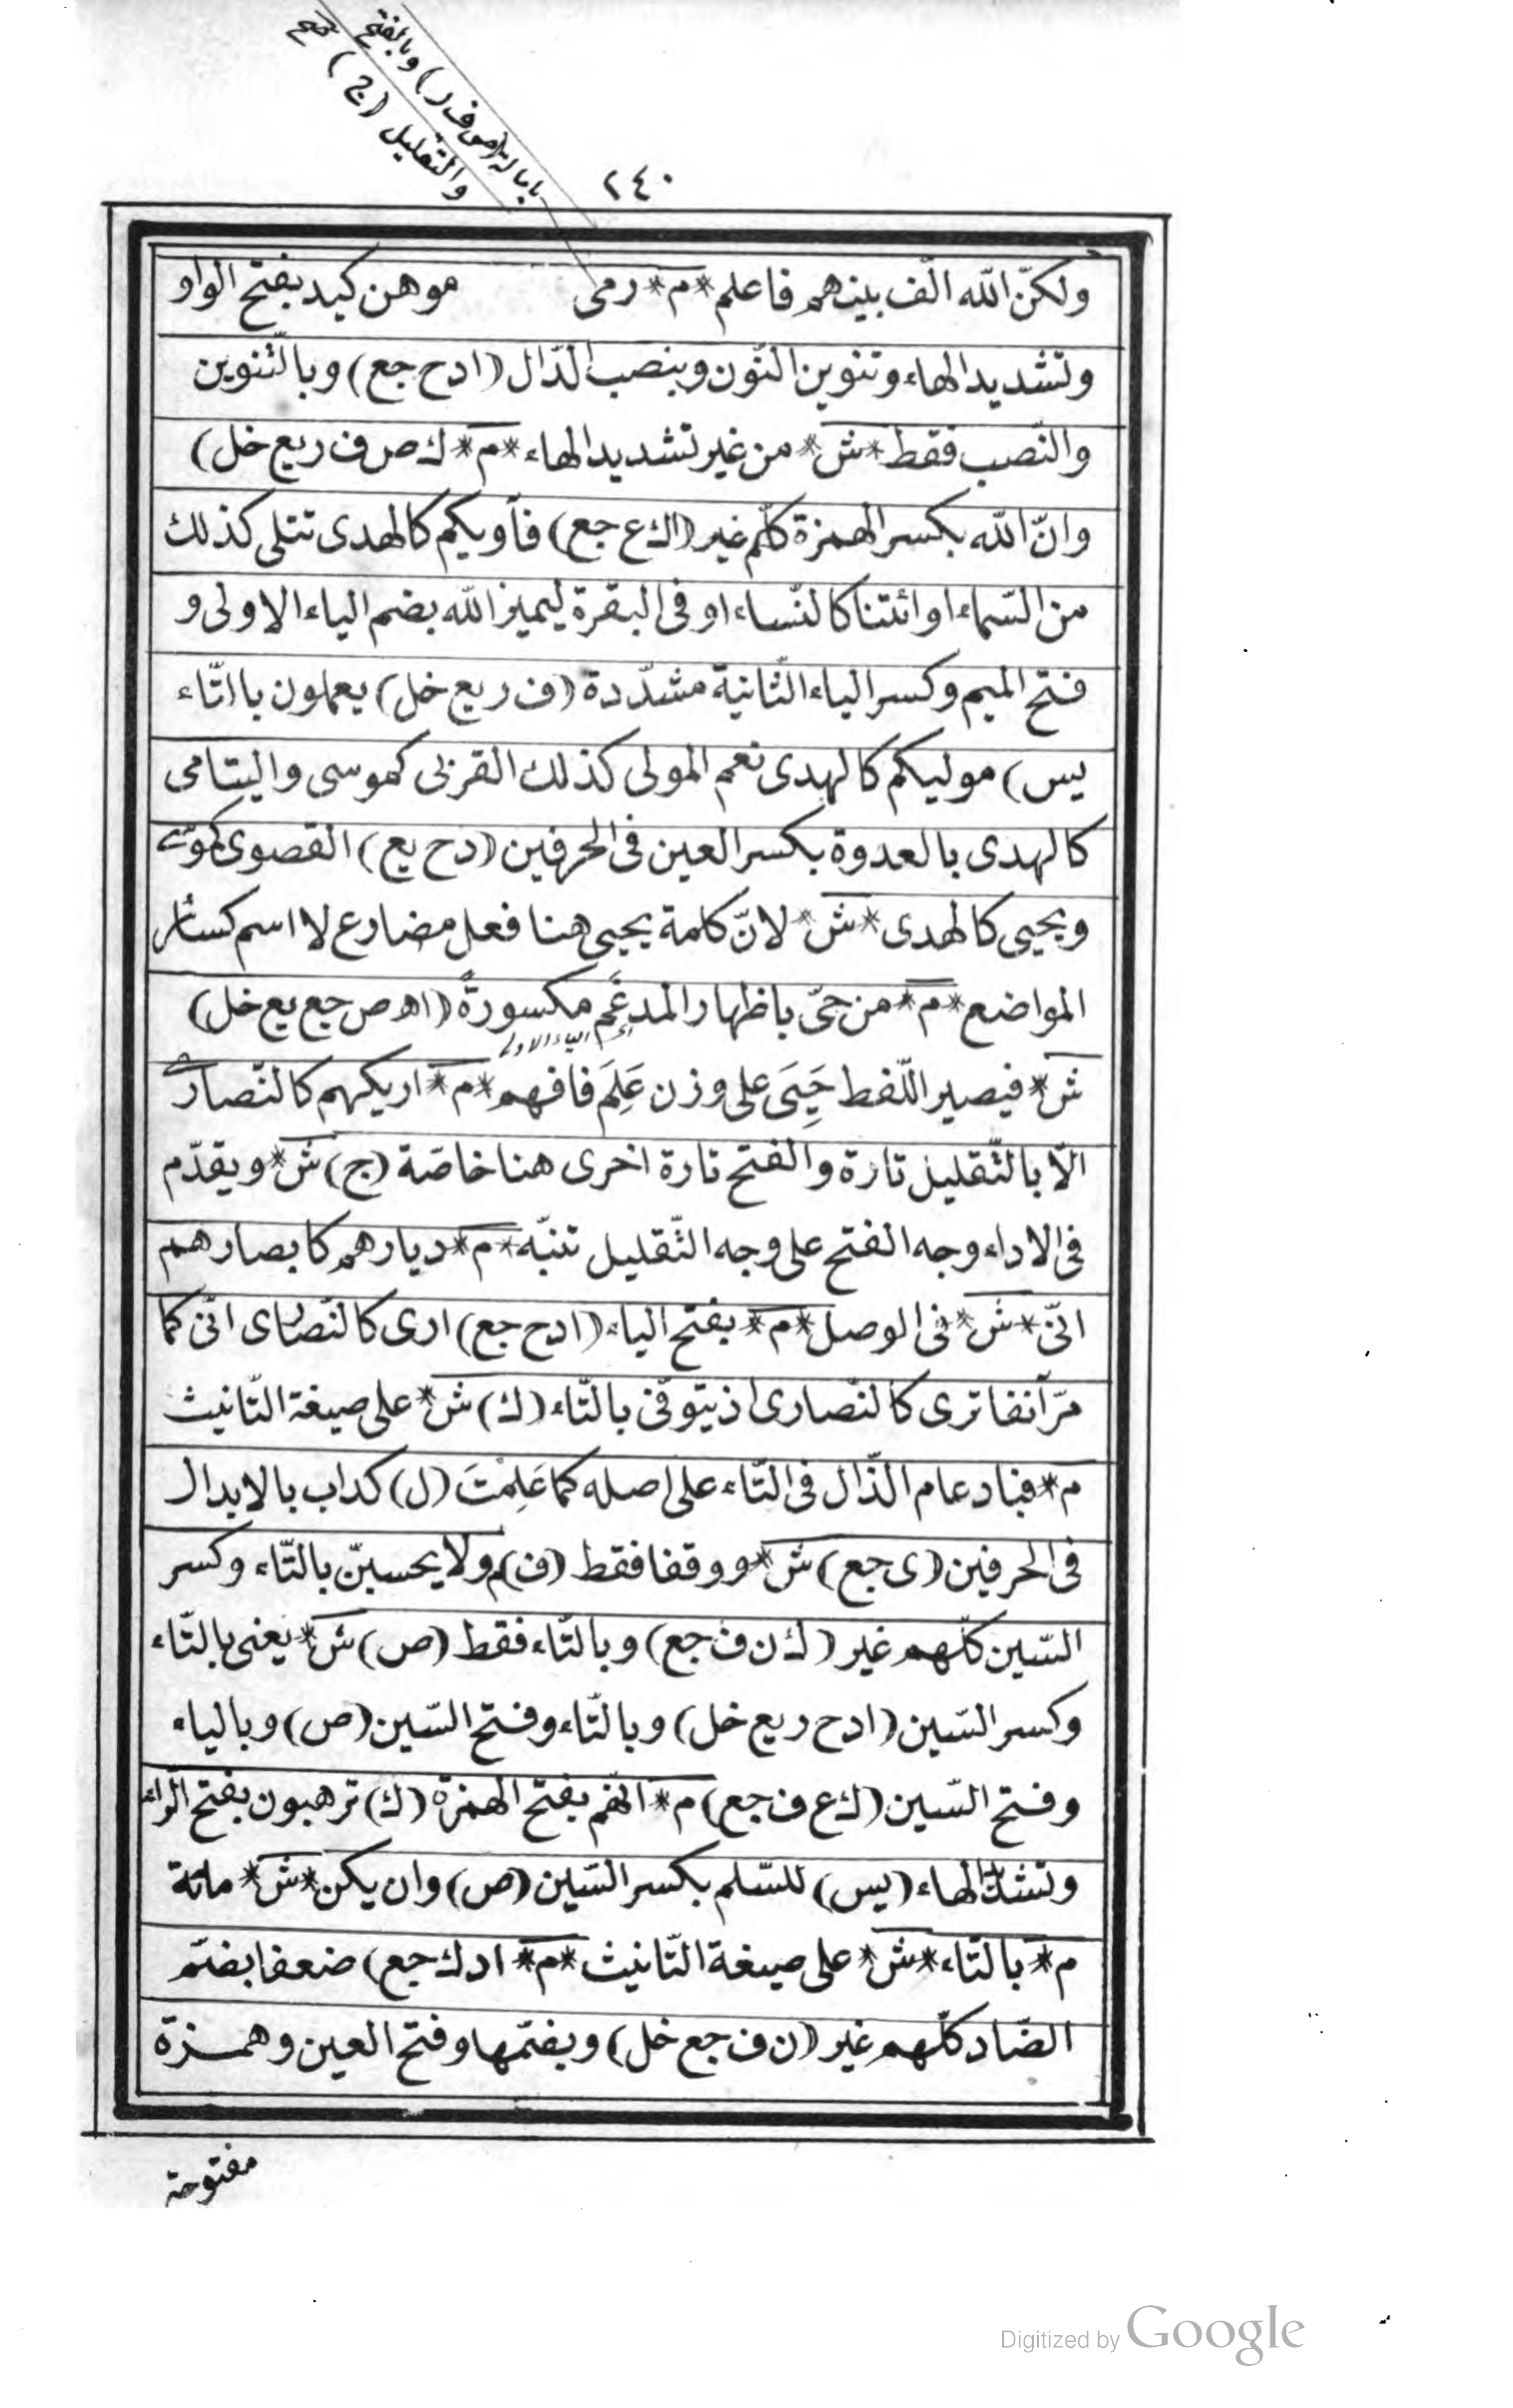 بامالة (ص ف ر) وبالفتح
والتقليل (ج)
٢٤٠
ولكنّ اللّه الّف بينهم فاعلم *م* رمى موهن كيد بفتح الواو
وتشديد الهاء وتنوين النّون وبنصب الدّال (ادح جع) وبالتّنوين
والنّصب فقط *ش* من غير تشديد الهاء *م* ك ص ف ر يع خل)
وانّ اللّه بكسر الهمزة كلّهم غير (اك ع جع) فأويكم كالهدى تتلى كذلك
من السّماء او ائتنا كالنّساء او فى البقرة ليميز اللّه بضم الياء الاولى و
فتح الميم وكسر الياء الثّانية مشدّدة (ف ر يع خل) يعملون بااتّاء
يس) موليكم كالهدى نعم المولى كذلك القربى كموسى واليتامى
كالهدى بالعدوة بكسر العين فى الحرفين (دح يع) القصوى كموسى
ويحيى كالهدى *ش* لانّ كلمة يحيى هنا فعل مضارع لا اسم كسائر
المواضع *م* من حىّ باظهار المدغَم مكسورةً (اه ص جع يع خل)
اى الياء الاولى
ش* فيصير اللّفظ حَيِىَ على وزن عَلِمَ فافهم *م* اريكهم كالنّصارى
الّا بالتّقليل تارة والفتح تارة اخرى هنا خاصّة (ج) ش* ويقدّم
فى الاداء وجه الفتح على وجه التّقليل تنبّه *م* ديارهم كابصارهم
انّى *ش* فى الوصل *م* بفتح الياء (ادح جع) ارى كالنّصارى انّى كما
مرّ آنفا ترى كالنّصارى اذ يتوفّى بالتّاء (ك) ش* على صيغة التّانيث
م* فبادغام الذّال فى التّاء على اصله كما عَلِمْتَ (ل) كداب بالابدال
فى الحرفين (ى جع) ش* ووقفا فقط (ف) م ولا يحسبنّ بالتّاء وكسر
السّين كلّهم غير (ك ن ف جع) وبالتّاء فقط (ص) ش* يعنى بالتّاء
وكسر السّين (ادح ر يع خل) وبالتّاء وفتح السّين (ص) وبالياء
وفتح السّين (ك ع ف جع) م* انّهم بفتح الهمزة (ك) ترهبون بفتح الرّاء
وتشديد الهاء (يس) للسّلم بكسر السّين (ص) وان يكن *ش* مائة
م* بالتّاء *ش* على صيغة التّانيث *م* ادك جع) ضعفا بضمّ
الضّاد كلّهم غير (ن ف جع خل) وبضمّها وفتح العين وهمزة
مفتوحة
Digitized by Google